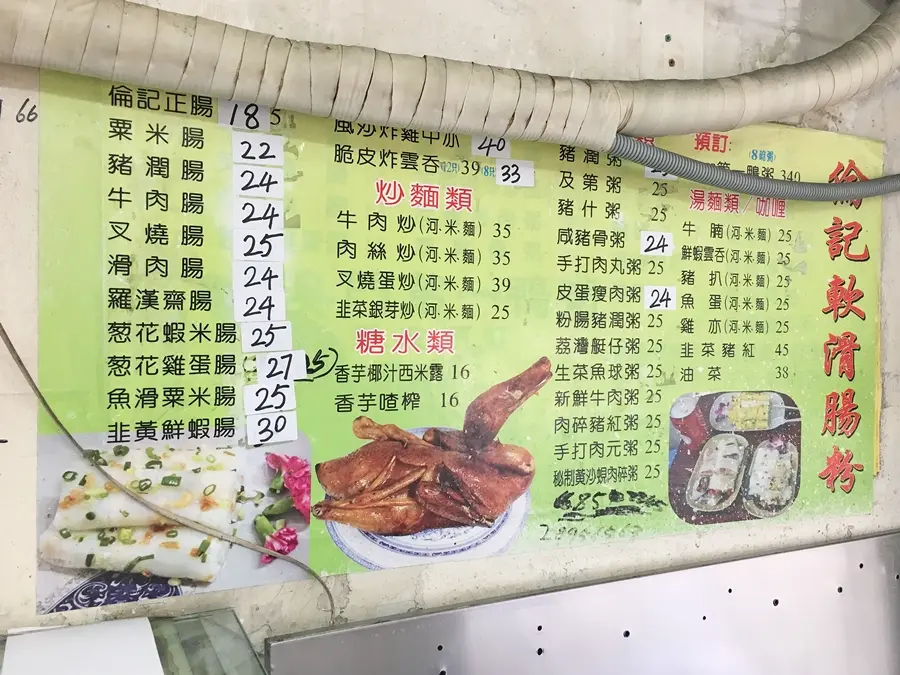 66
倫記正腸 18
粟米腸 22
豬潤腸 24
牛肉腸 24
叉燒腸 25
滑肉腸 24
羅漢齋腸 24
葱花蝦米腸 25
葱花雞蛋腸 27
魚滑粟米腸 25
韭黃鮮蝦腸 30
風沙炸雞中亦 40
脆皮炸雲吞(12只) 39 (8只) 33
炒麵類
牛肉炒(河.米.麵) 35
肉絲炒(河.米.麵) 35
叉燒蛋炒(河.米.麵) 39
韭菜銀芽炒(河.米.麵) 25
糖水類
香芋椰汁西米露 16
香芋喳榨 16
豬潤粥
及第粥 25
豬什粥 25
咸豬骨粥 24
手打肉丸粥 25
皮蛋瘦肉粥 24
粉腸豬潤粥 25
荔灣艇仔粥 25
生菜魚球粥 25
新鮮牛肉粥 25
肉碎豬紅粥 25
手打肉元粥 25
秘制黃沙蜆肉碎粥 25
預訂:
第一鴨粥 340
湯麵類/咖喱
牛腩(河.米.麵) 25
鮮蝦雲吞(河.米.麵) 25
豬扒(河.米.麵) 25
魚蛋(河.米.麵) 25
雞亦(河.米.麵) 25
韭菜豬紅 45
油菜 38
倫記軟滑腸粉